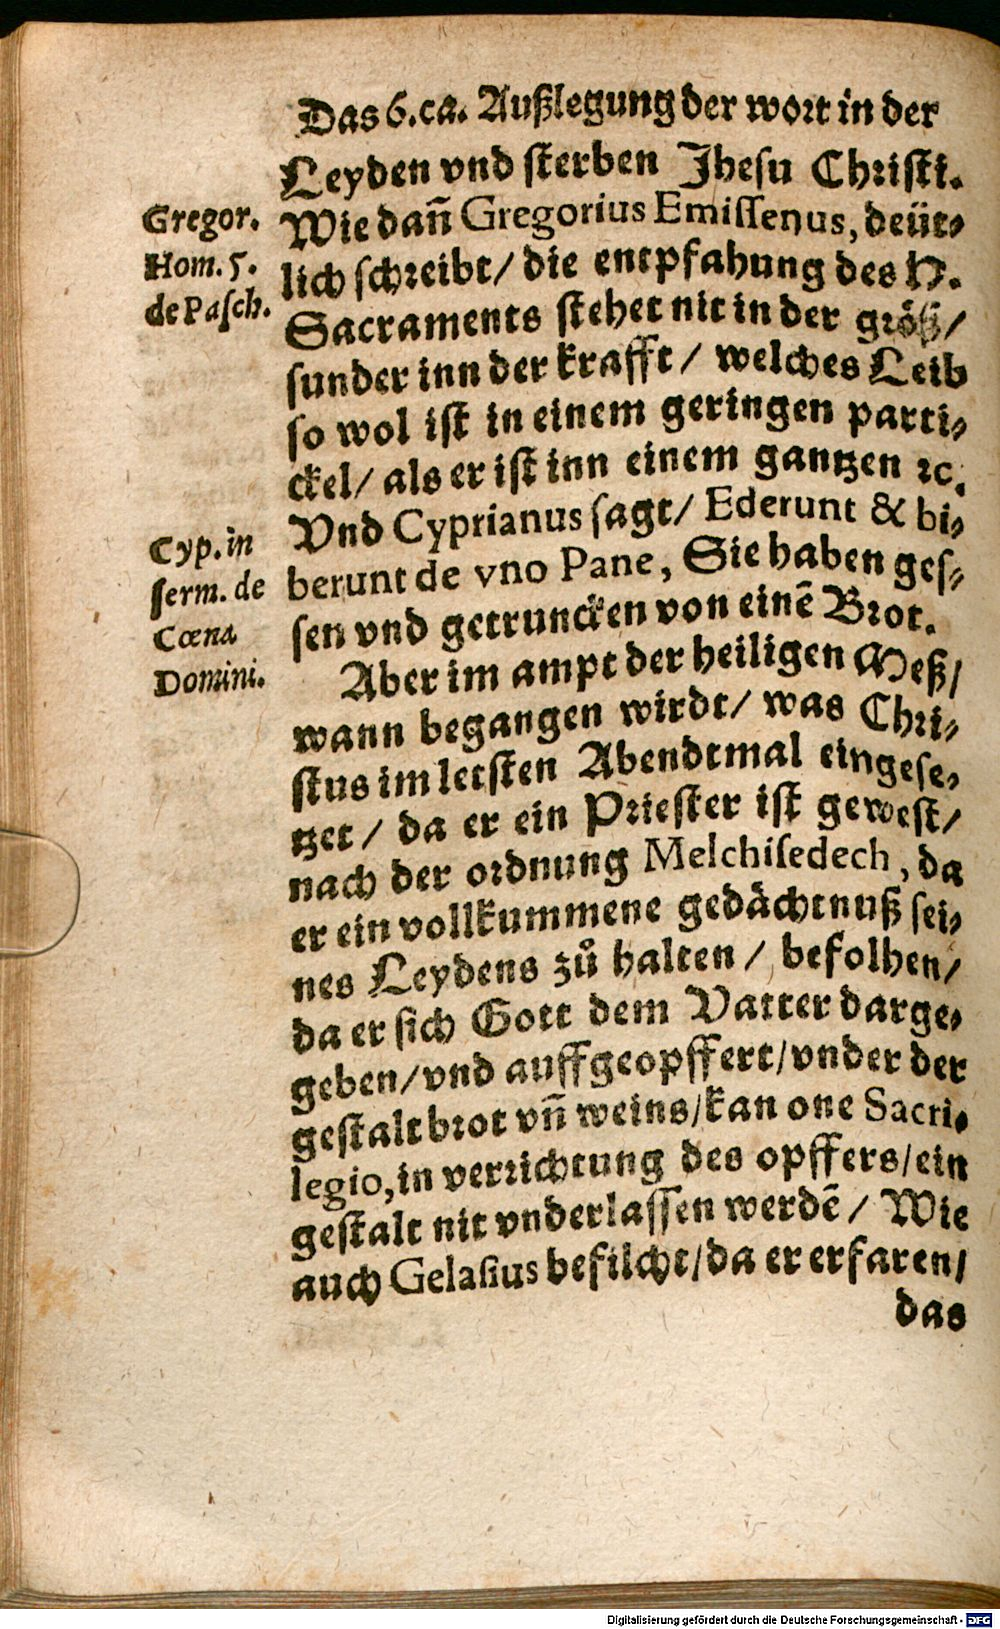 Das 6. ca. Außlegung der wort in der
Leyden vnd sterben Jhesu Christi.
Gregor.
Hom. 5.
de Pasch.
Wie dañ Gregorius Emissenus, deüt-
lich schreibt/ die entpfahung des H.
Sacraments stehet nit in der größ/
sunder inn der krafft/ welches Leib
so wol ist in einem geringen parti-
ckel/ als er ist inn einem gantzen ꝛc.
Vnd Cyprianus sagt/ Ederunt & bi-
berunt de vno Pane, Sie haben ges-
sen vnd getruncken von einē Brot.
Cyp. in
serm. de
Cœna
Domini.
Aber im ampt der heiligen Meß/
wann begangen wirdt/ was Chri-
stus im letsten Abendtmal eingese-
tzet/ da er ein Priester ist gewest/
nach der ordnung Melchisedech, da
er ein vollkummene gedächtnuß sei-
nes Leydens zů halten/ befolhen/
da er sich Gott dem Vatter darge-
geben/ vnd auffgeopffert/ vnder der
gestalt brot vñ weins/ kan one Sacri-
legio, in verrichtung des opffers/ ein
gestalt nit vnderlassen werdē/ Wie
auch Gelasius befilcht/ da er erfaren/
das
Digitalisierung gefördert durch die Deutsche Forschungsgemeinschaft - DFG